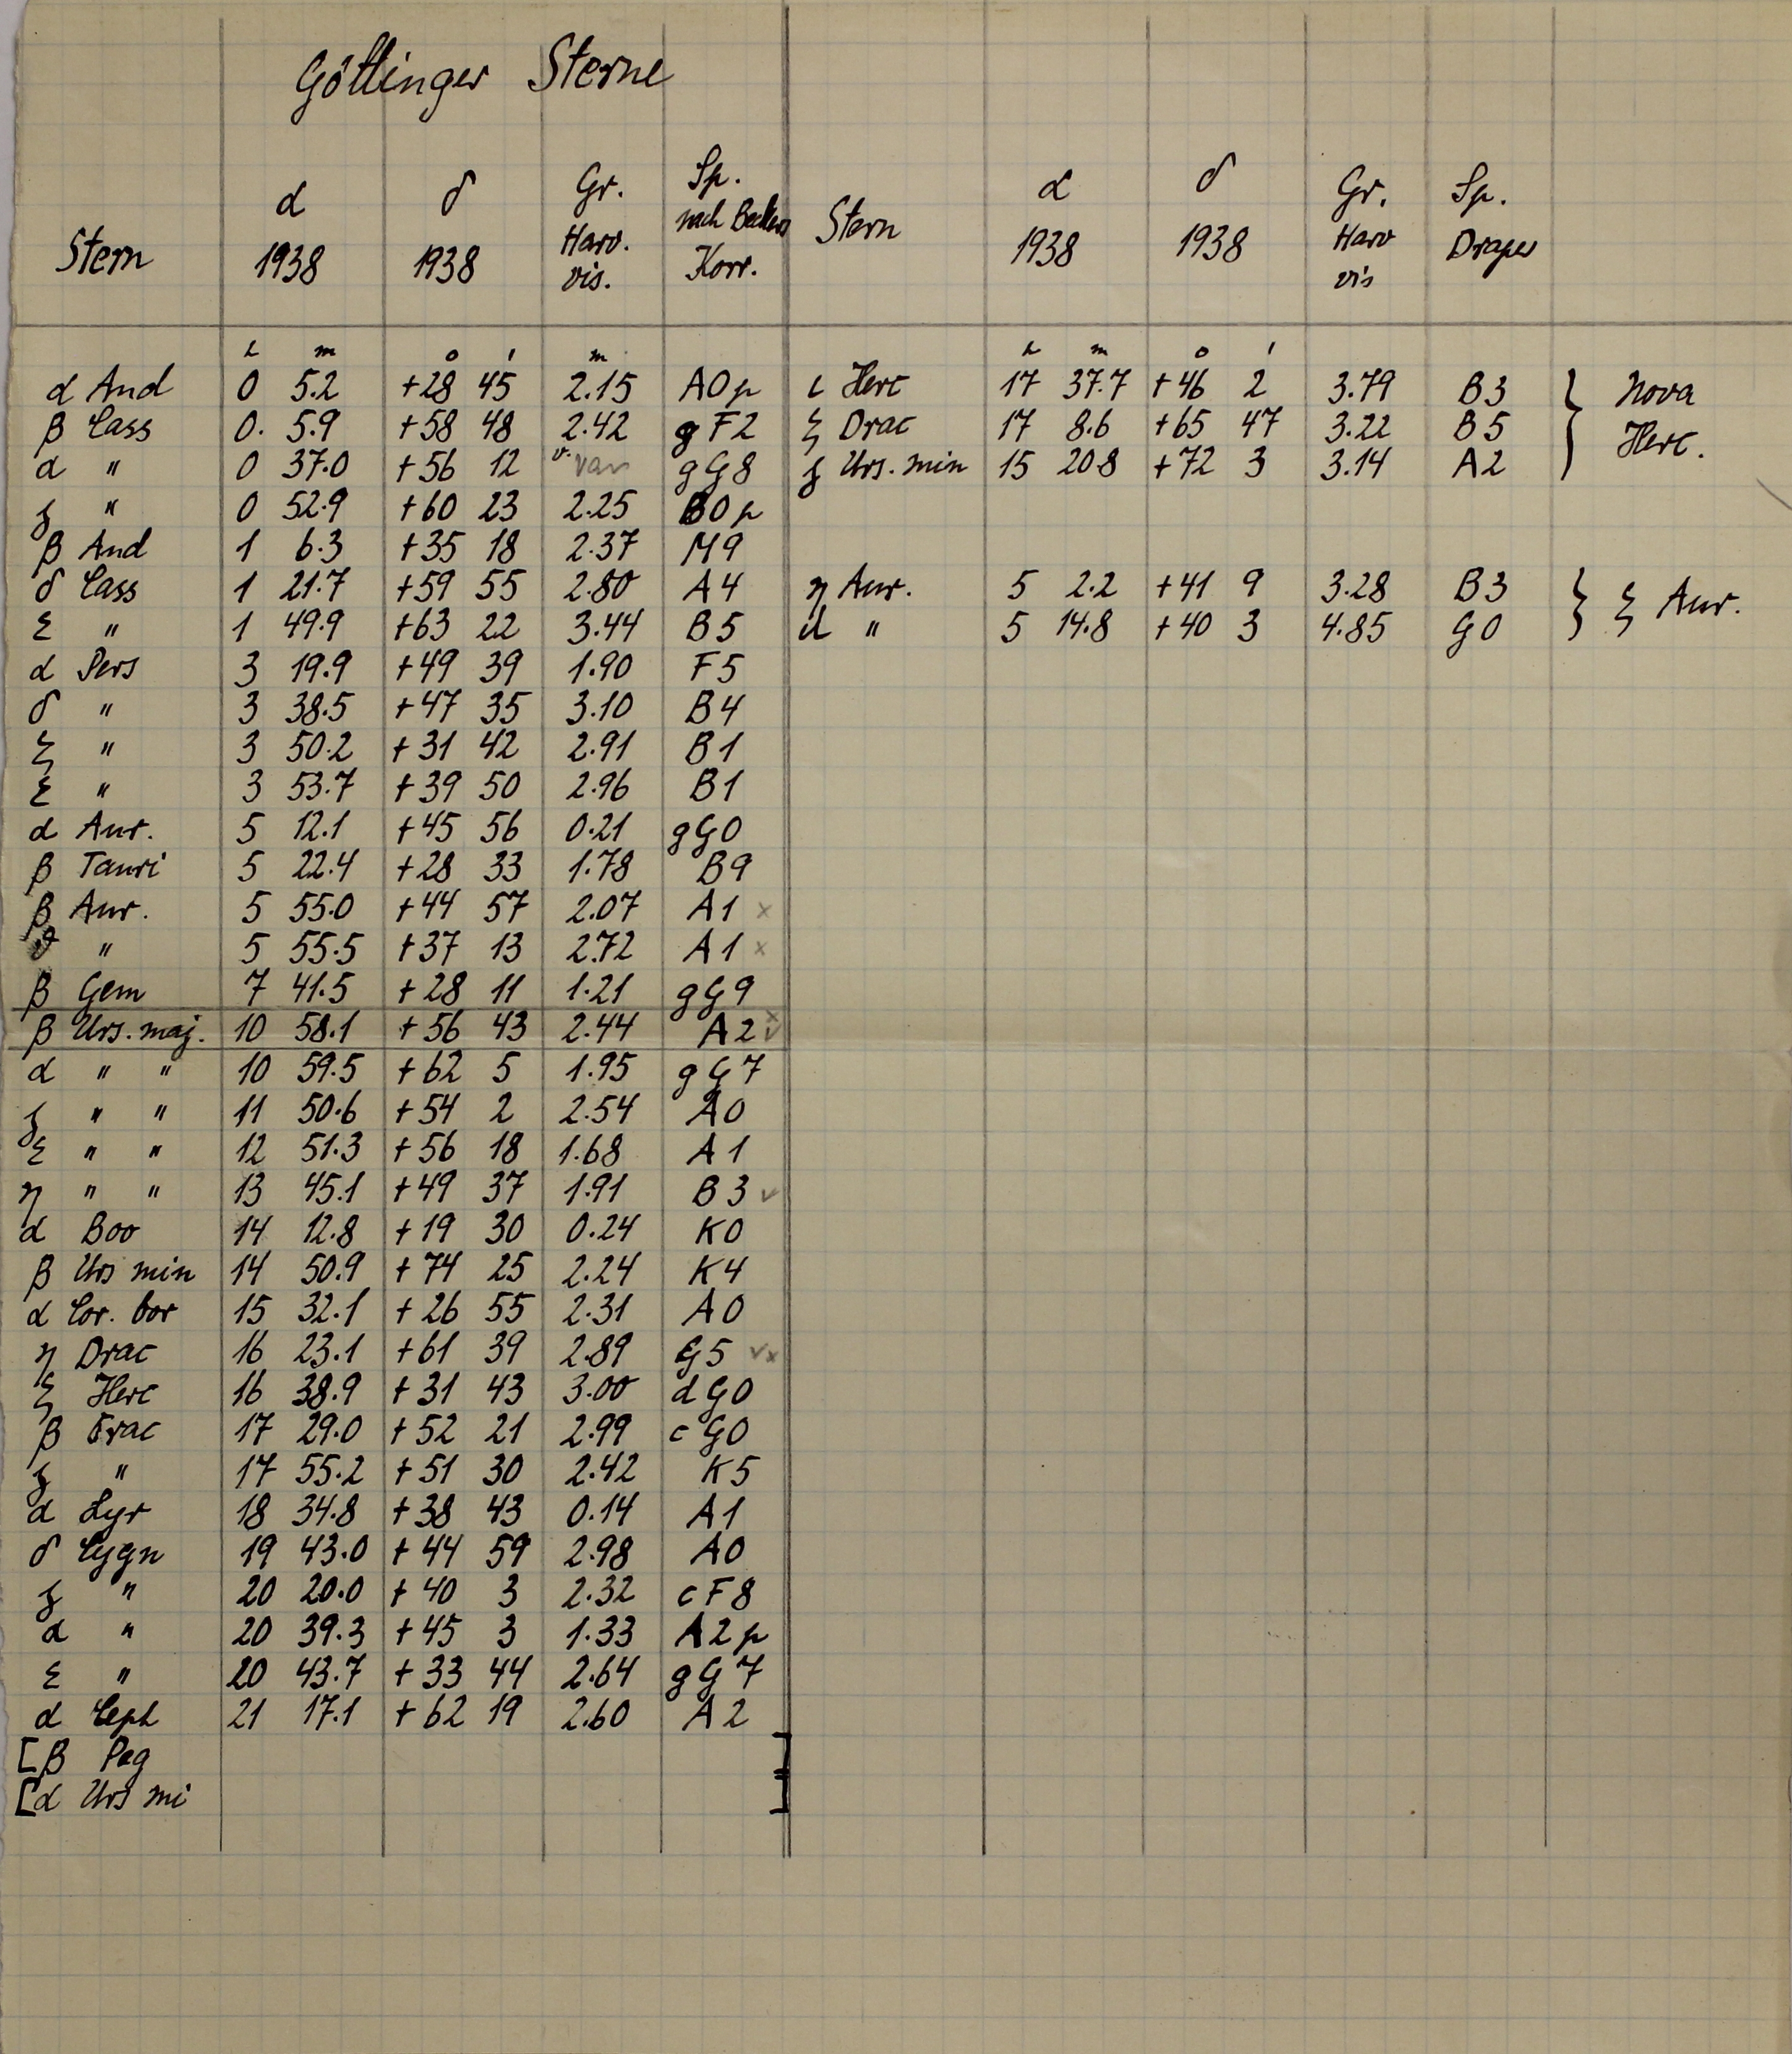 Göttinger Sterne
Stern α 1938 δ 1938 Gr. Harv. vis. Sp. nach Beckers Korr. Stern α 1938 δ 1938 Gr. Harv vis Sp. Draper
h m ° ' m h m ° '
α And 0 5.2 +28 45 2.15 A0p ι Herc 17 37.7 +46 2 3.79 B3 } Nova
β Cass 0. 5.9 +58 48 2.42 gF2 ζ Drac 17 8.6 +65 47 3.22 B5 Herc.
α " 0 37.0 +56 12 v. var gG8 γ Urs. min 15 20.8 +72 3 3.14 A2
γ " 0 52.9 +60 23 2.25 B0p
β And 1 6.3 +35 18 2.37 M9
δ Cass 1 21.7 +59 55 2.80 A4 η Aur. 5 2.2 +41 9 3.28 B3 } ζ Aur.
ε " 1 49.9 +63 22 3.44 B5 " 5 14.8 +40 3 4.85 G0
α Pers 3 19.9 +49 39 1.90 F5
δ " 3 38.5 +47 35 3.10 B4
ζ " 3 50.2 +31 42 2.91 B1
ε " 3 53.7 +39 50 2.96 B1
α Aur. 5 12.1 +45 56 0.21 gG0
β Tauri 5 22.4 +28 33 1.78 B9
β Aur. 5 55.0 +44 57 2.07 A1 x
ϑ " 5 55.5 +37 13 2.72 A1 x
β Gem 7 41.5 +28 11 1.21 gG9
β Urs. maj. 10 58.1 +56 43 2.44 A2 x v
α " " 10 59.5 +62 5 1.95 gG7
γ " " 11 50.6 +54 2 2.54 A0
ε " " 12 51.3 +56 18 1.68 A1
η " " 13 45.1 +49 37 1.91 B3 v
α Boo 14 12.8 +19 30 0.24 K0
β Urs min 14 50.9 +74 25 2.24 K4
α Cor. bor 15 32.1 +26 55 2.31 A0
η Drac 16 23.1 +61 39 2.89 G5 vx
ζ Herc 16 38.9 +31 43 3.00 dG0
β Drac 17 29.0 +52 21 2.99 cG0
γ " 17 55.2 +51 30 2.42 K5
α Lyr 18 34.8 +38 43 0.14 A1
δ Cygn 19 43.0 +44 59 2.98 A0
γ " 20 20.0 +40 3 2.32 cF8
α " 20 39.3 +45 3 1.33 A2p
ε " 20 43.7 +33 44 2.64 gG7
α Ceph 21 17.1 +62 19 2.60 A2
[β Peg ]
[α Urs mi ]